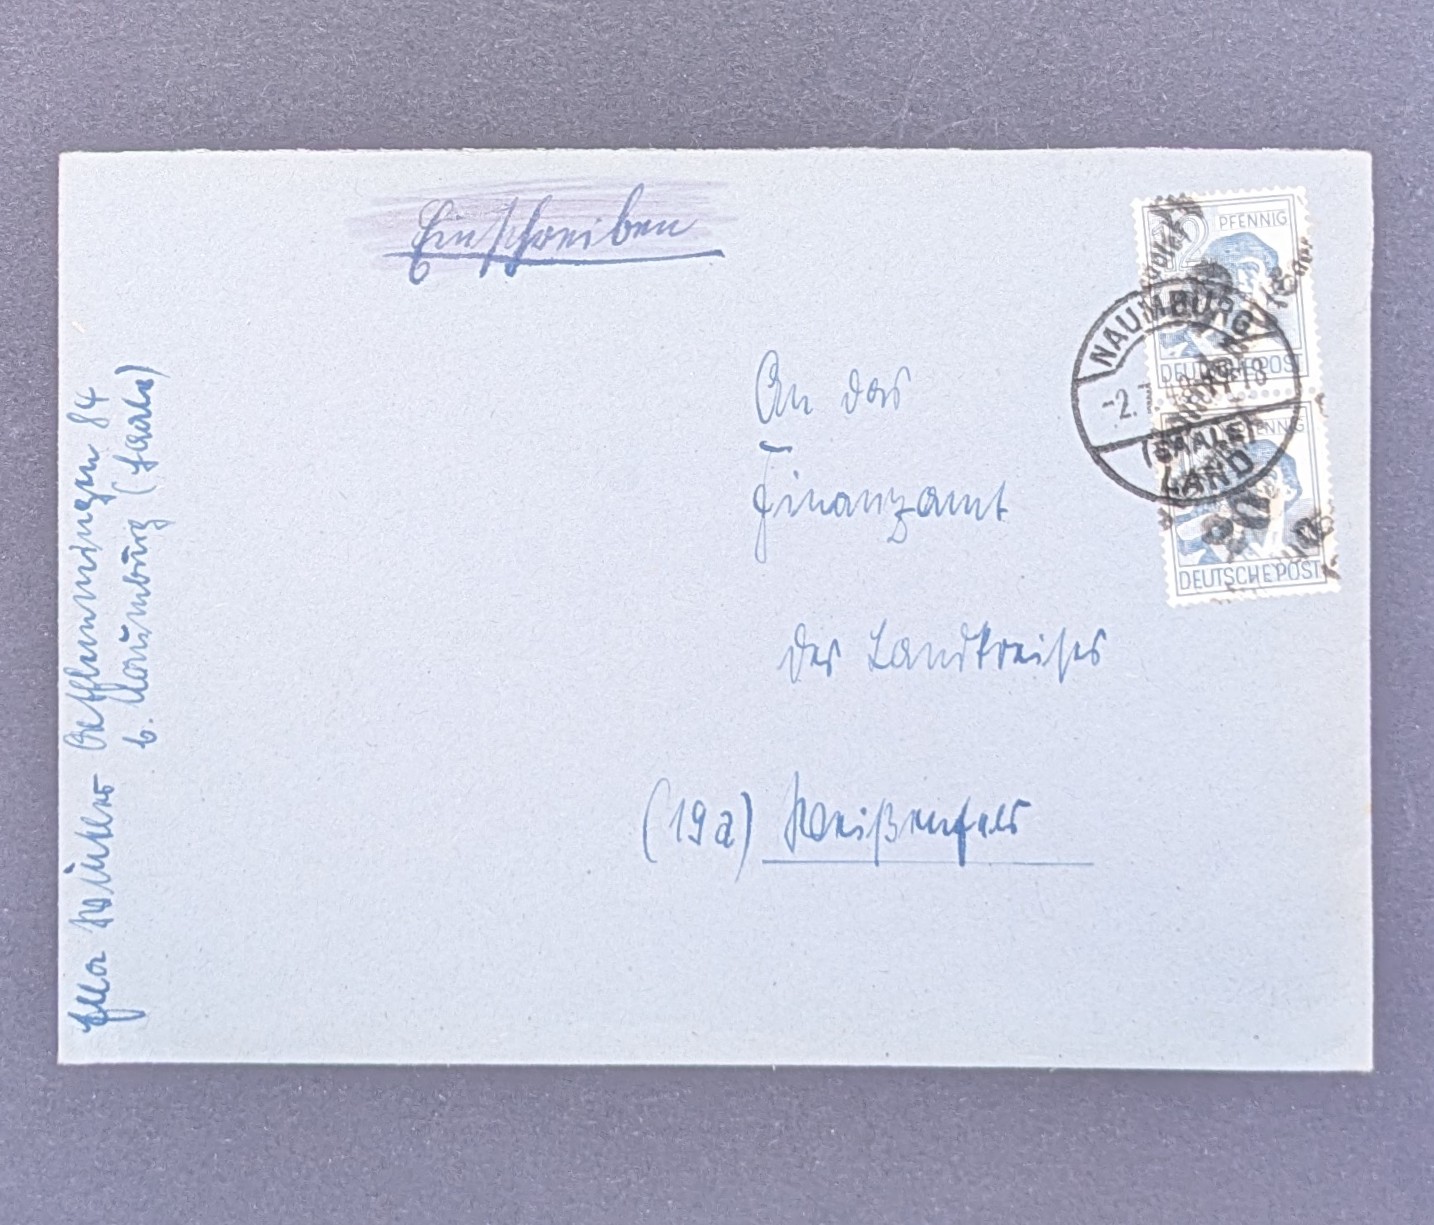 Einschreiben
An das
Finanzamt
des Landkreises
(19a) Weißenfels
Ella
84
b. Naumburg (Saale)
12 PFENNIG
DEUTSCHE POST
PFENNIG
DEUTSCHE POST
NAUMBURG
-2.7. -18
(SAALE)
LAND